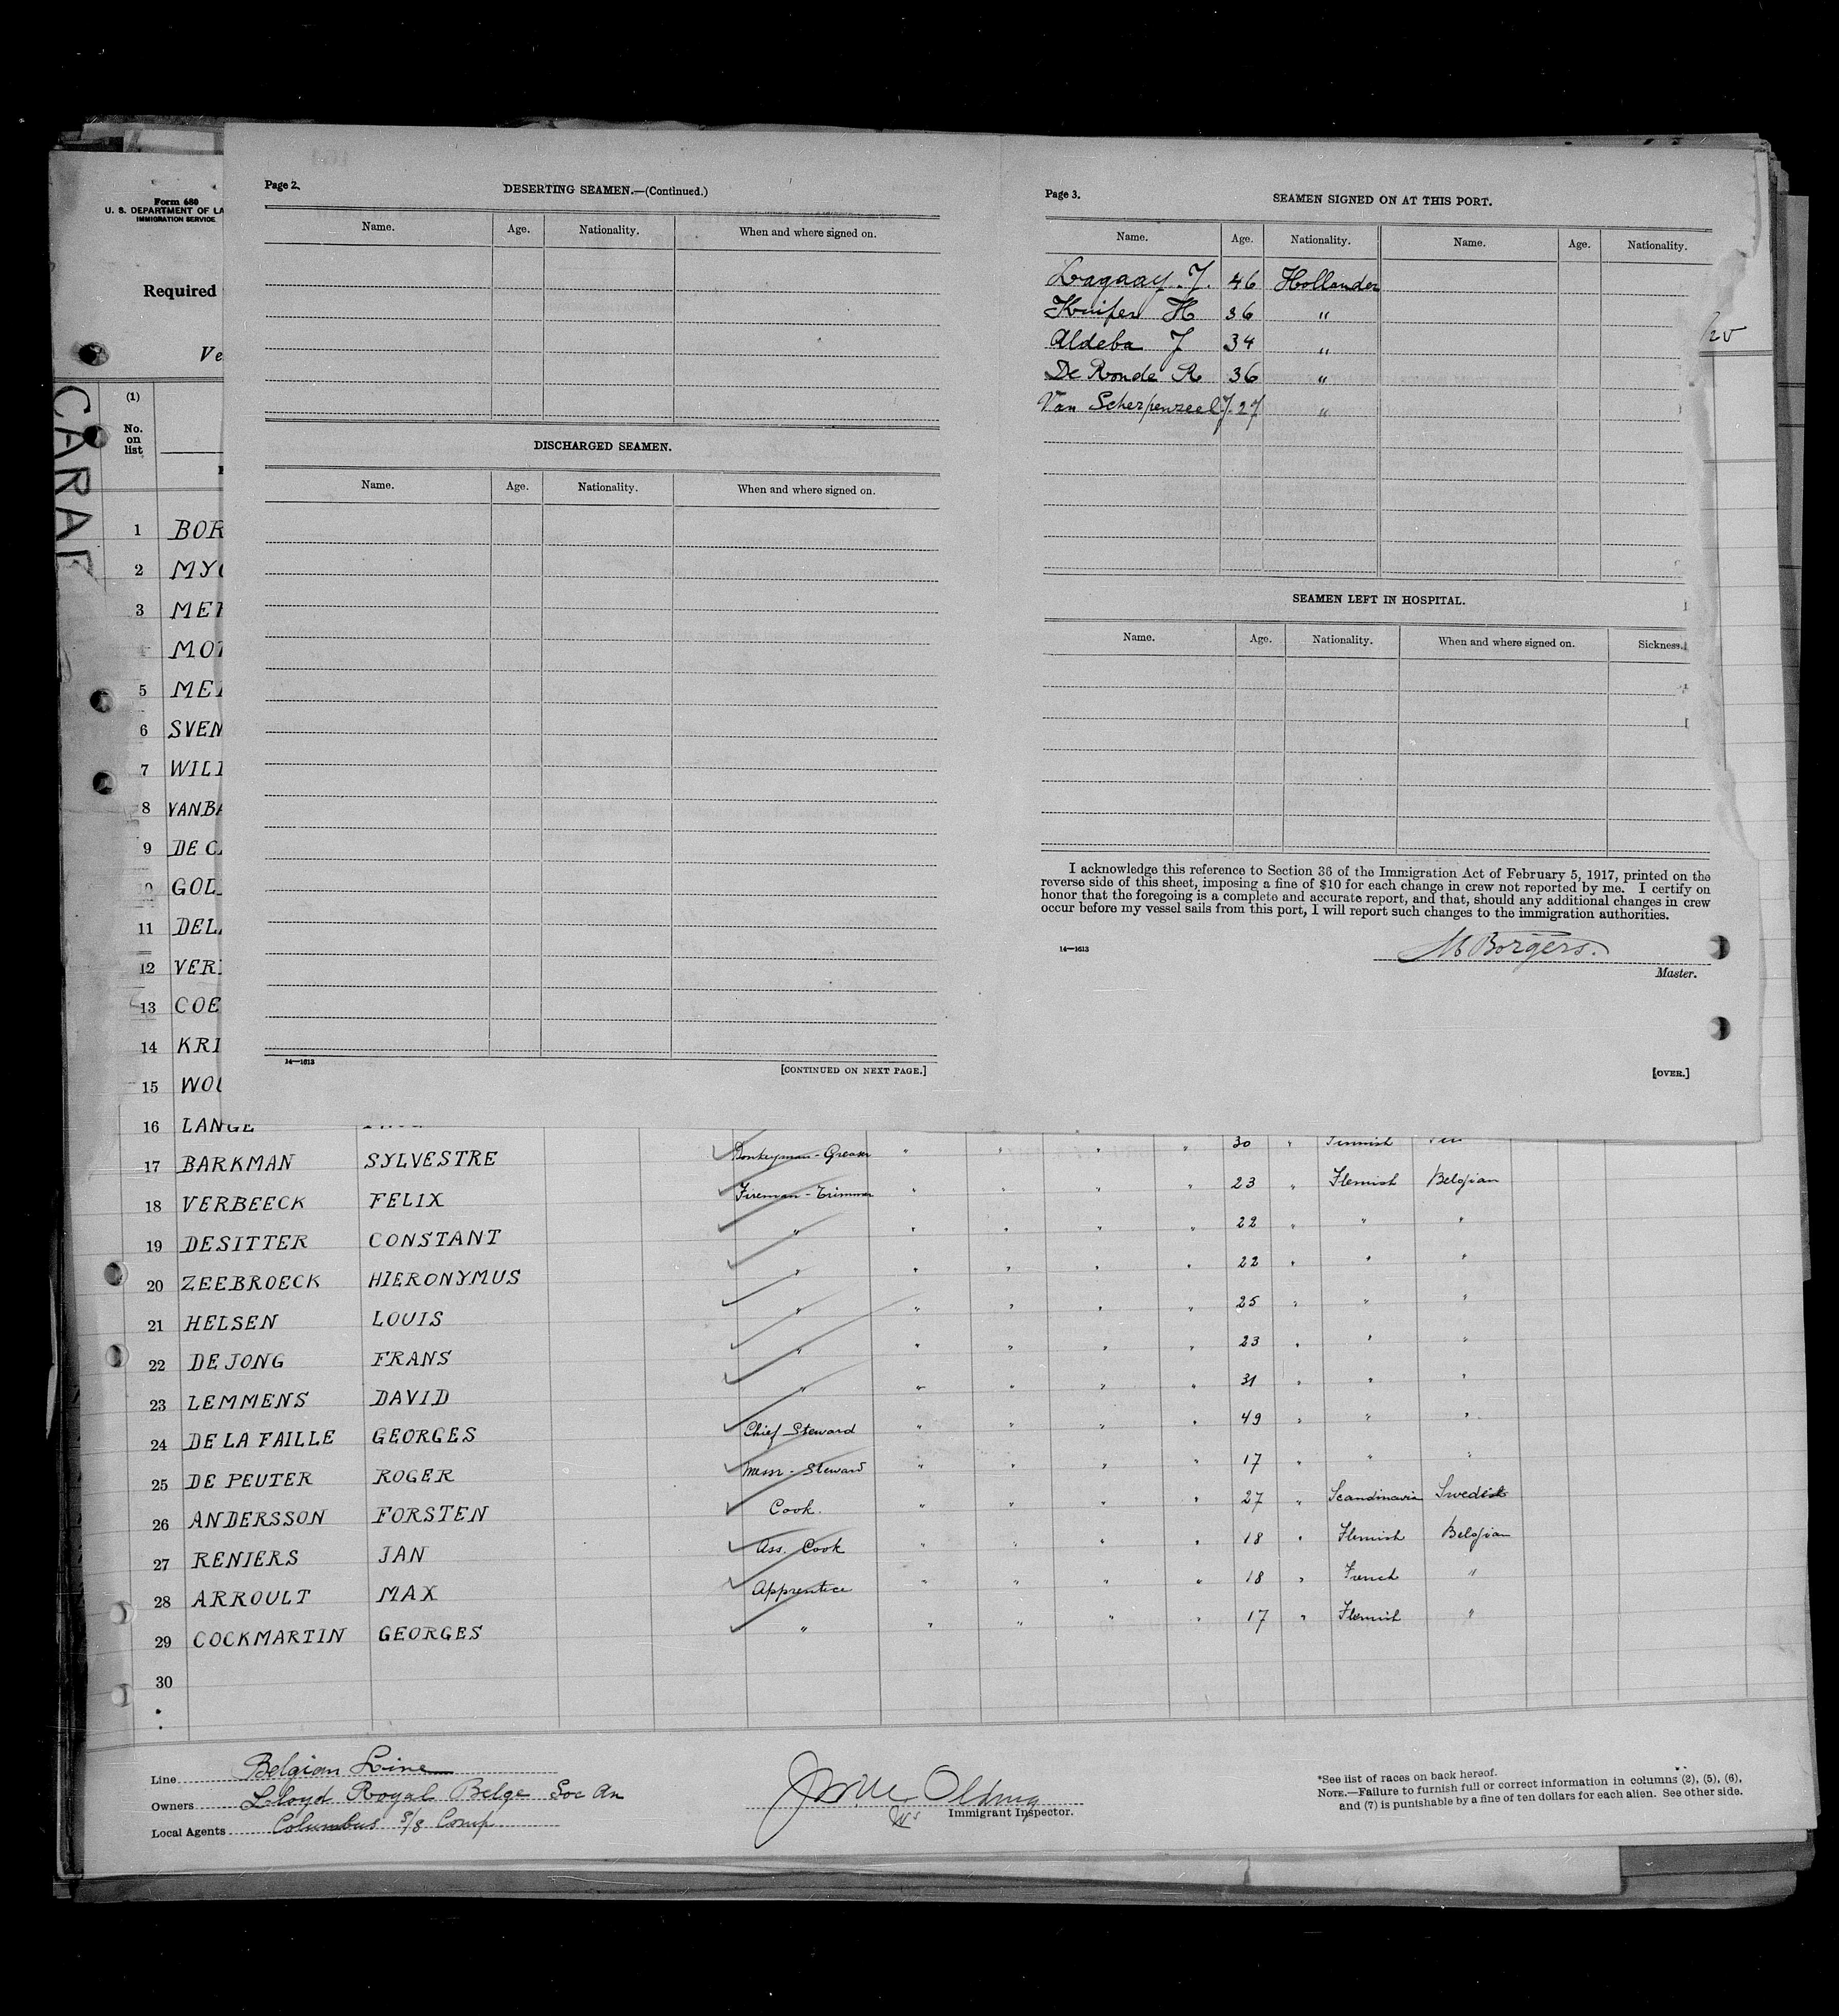 Page 2.
DESERTING SEAMEN.—(Continued.)
Name. Age. Nationality. When and where signed on.
DISCHARGED SEAMEN.
Name. Age. Nationality. When and where signed on.
14—1613
[CONTINUED ON NEXT PAGE.]
Page 3.
SEAMEN SIGNED ON AT THIS PORT.
Name. Age. Nationality. Name. Age. Nationality.
Lagaay. J. 46 Hollander
Kuiper H 36 "
Aldeba J 34 "
De Ronde R 36 "
Van Scherpenzeel J. 27 "
SEAMEN LEFT IN HOSPITAL.
Name. Age. Nationality. When and where signed on. Sickness.
I acknowledge this reference to Section 36 of the Immigration Act of February 5, 1917, printed on the
reverse side of this sheet, imposing a fine of $10 for each change in crew not reported by me. I certify on
honor that the foregoing is a complete and accurate report, and that, should any additional changes in crew
occur before my vessel sails from this port, I will report such changes to the immigration authorities.
14—1613
M Borgers.
Master.
[OVER.]
Form 680
U. S. DEPARTMENT OF LA
IMMIGRATION SERVICE
Required
Ve
CARAB
(1)
No.
on
list
1 BOR
2 MY
3 MER
MOT
5 ME
6 SVEN
7 WILL
8 VAN.BA
9 DE C
GOD
11 DEL
12 VER
13 COE
14 KRI
15 WOU
16 LANGE 30 "
17 BARKMAN SYLVESTRE Donkeyman - Greaser " " " " 23 " Flemish Belgian
18 VERBEECK FELIX Fireman - Trimmer " " " " 22 " " "
19 DESITTER CONSTANT " " " " " 22 " " "
20 ZEEBROECK HIERONYMUS " " " " " 25 " " "
21 HELSEN LOUIS " " " " " 23 " " "
22 DE JONG FRANS " " " " " 31 " " "
23 LEMMENS DAVID " " " " " 49 " " "
24 DE LA FAILLE GEORGES Chief Steward " " " " 17 " " "
25 DE PEUTER ROGER Mess - Steward " " " " 27 " Scandinavia Swedish
26 ANDERSSON FORSTEN Cook. " " " " 18 " Flemish Belgian
27 RENIERS JAN Ass. Cook " " " " 18 " French "
28 ARROULT MAX Apprentice " " " " 17 " Flemish "
29 COCKMARTIN GEORGES " " " " "
30
Line Belgian Line
Owners Lloyd Royal Belge Soc An
Local Agents Columbus S/S Comp
Immigrant Inspector.
*See list of races on back hereof.
NOTE.—Failure to furnish full or correct information in columns (2), (5), (6),
and (7) is punishable by a fine of ten dollars for each alien. See other side.